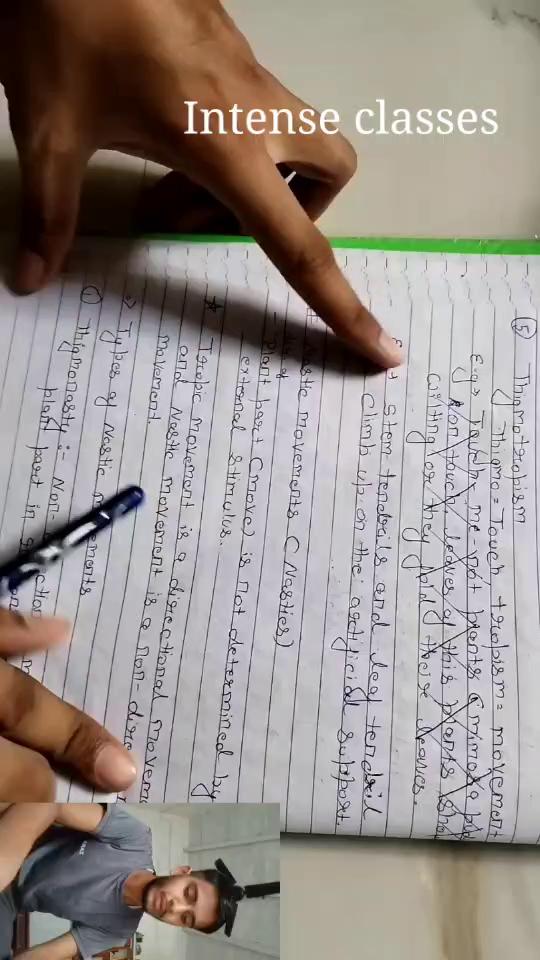 Intense classes
⑤ Thigmotropism
Thigmo = Touch tropism = movement
E.g → Touch me not plants (mimosa
on touch leaves of this plants
or they fold their leaves.
→ Stem tendrils and leaf tendril
climb up on the artificial support.
Nastic movements (Nasties)
- plant part (move) is not determined by
external stimulus.
* Tropic movement is a directional movem
and Nastic movement is a non-direc
movement.
⇒ Types of Nastic movements
① Thigmonasty :- Non-
plant part in